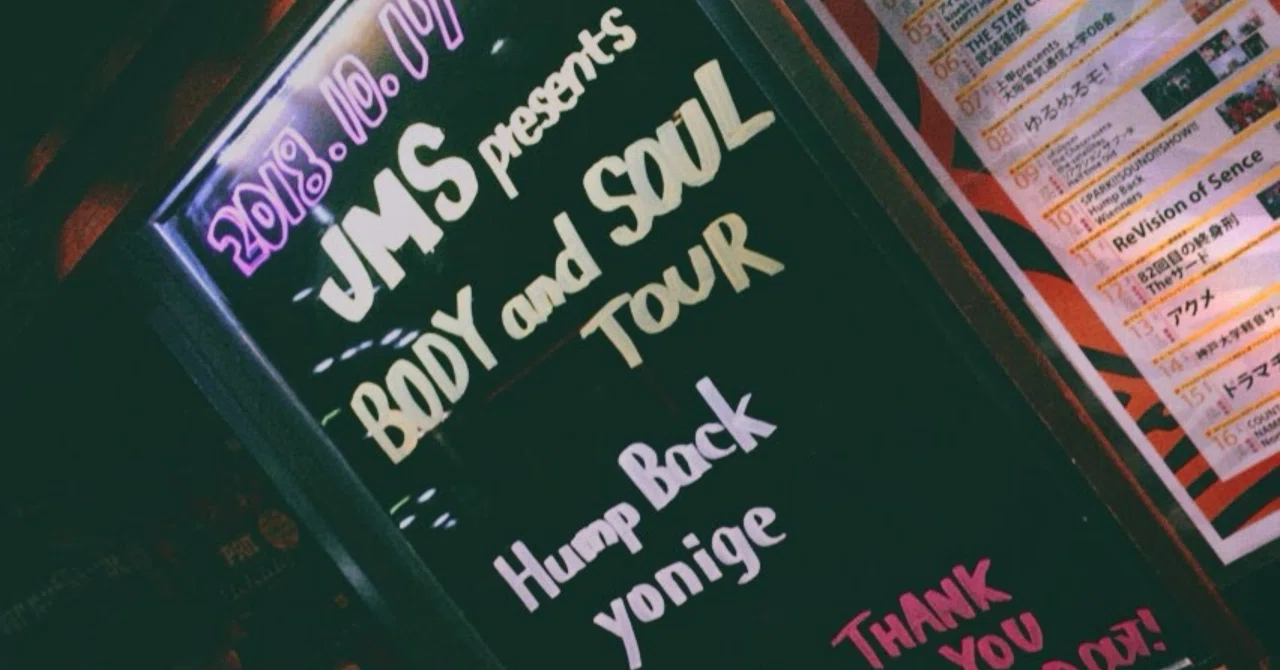 2018.10.17
JMS presents
BODY and SOUL
TOUR
Hump Back
yonige
THANK
YOU
OUT!
05
THE STAR
武装衝突
06
上甲presents
大阪電気通信大学OB会
07
ゆるめるモ!
08
09
SPARK!!SOUND!!SHOW!!
Hump Back
Wienners
10
ReVision of Sence
11
82回目の終身刑
Theサード
12
アクメ
13
神戸大学軽音サ
14
ドラマチ
15
COUN
NAM
16